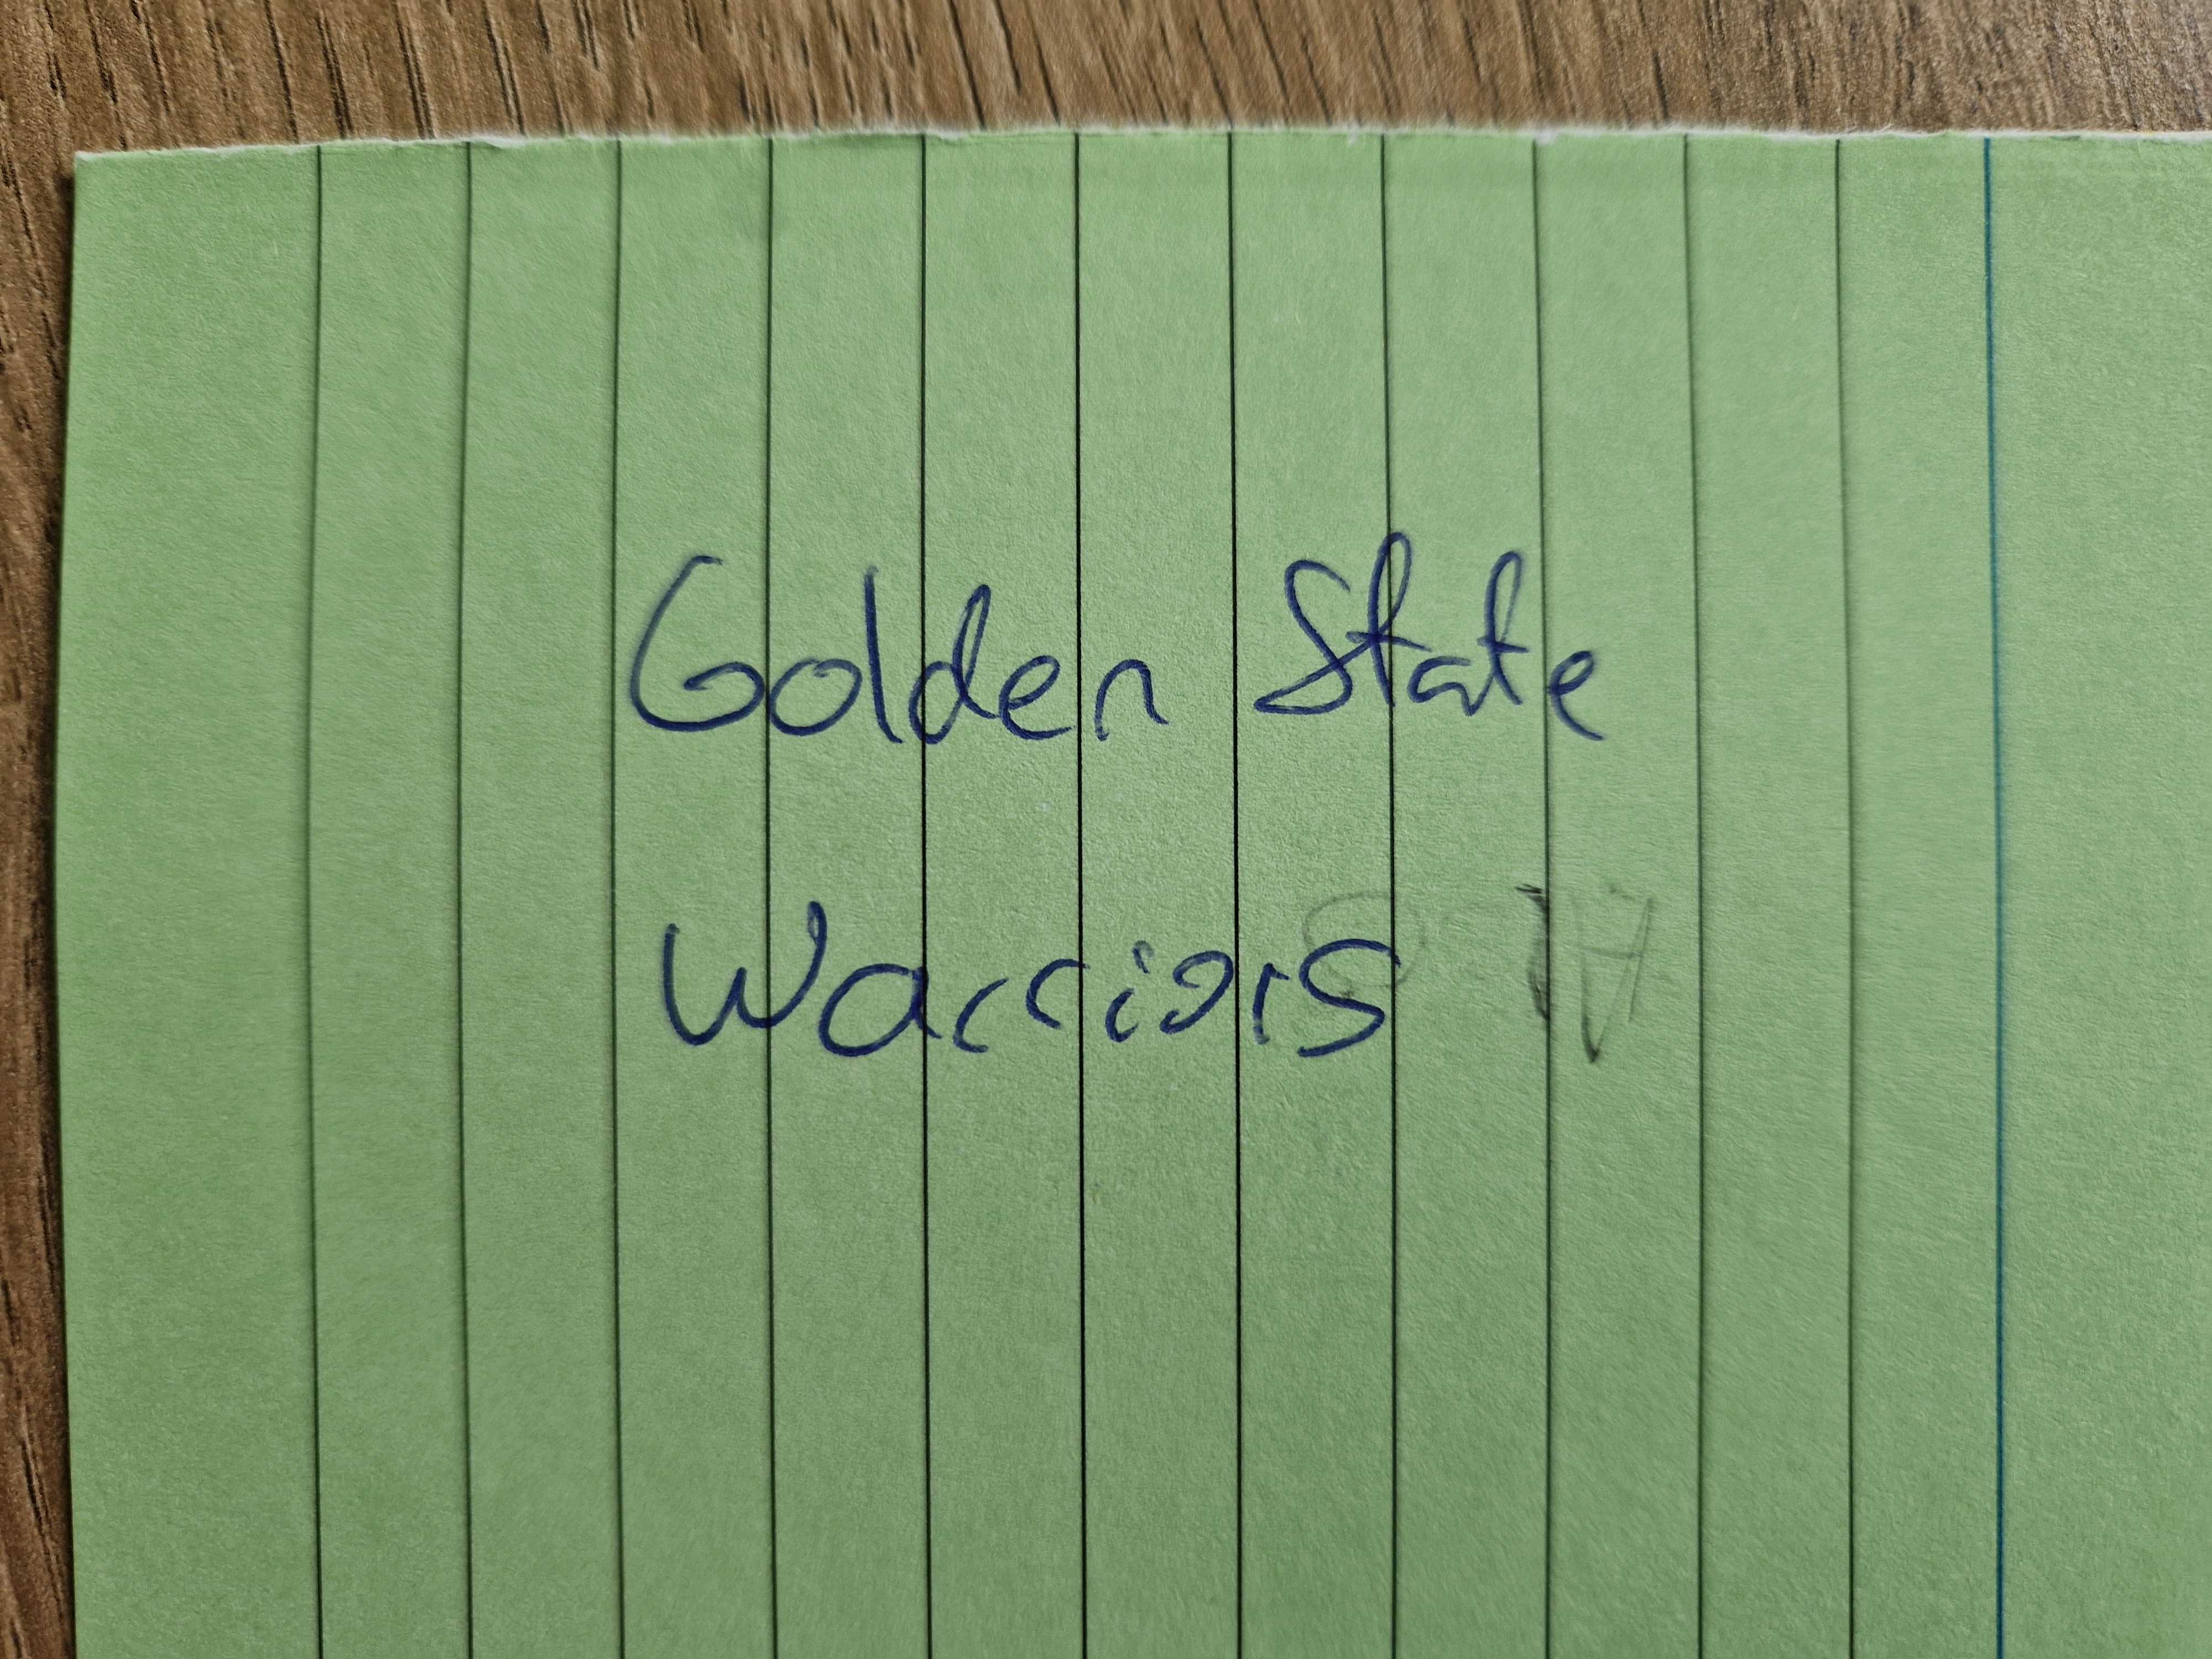 Golden State
Warriors